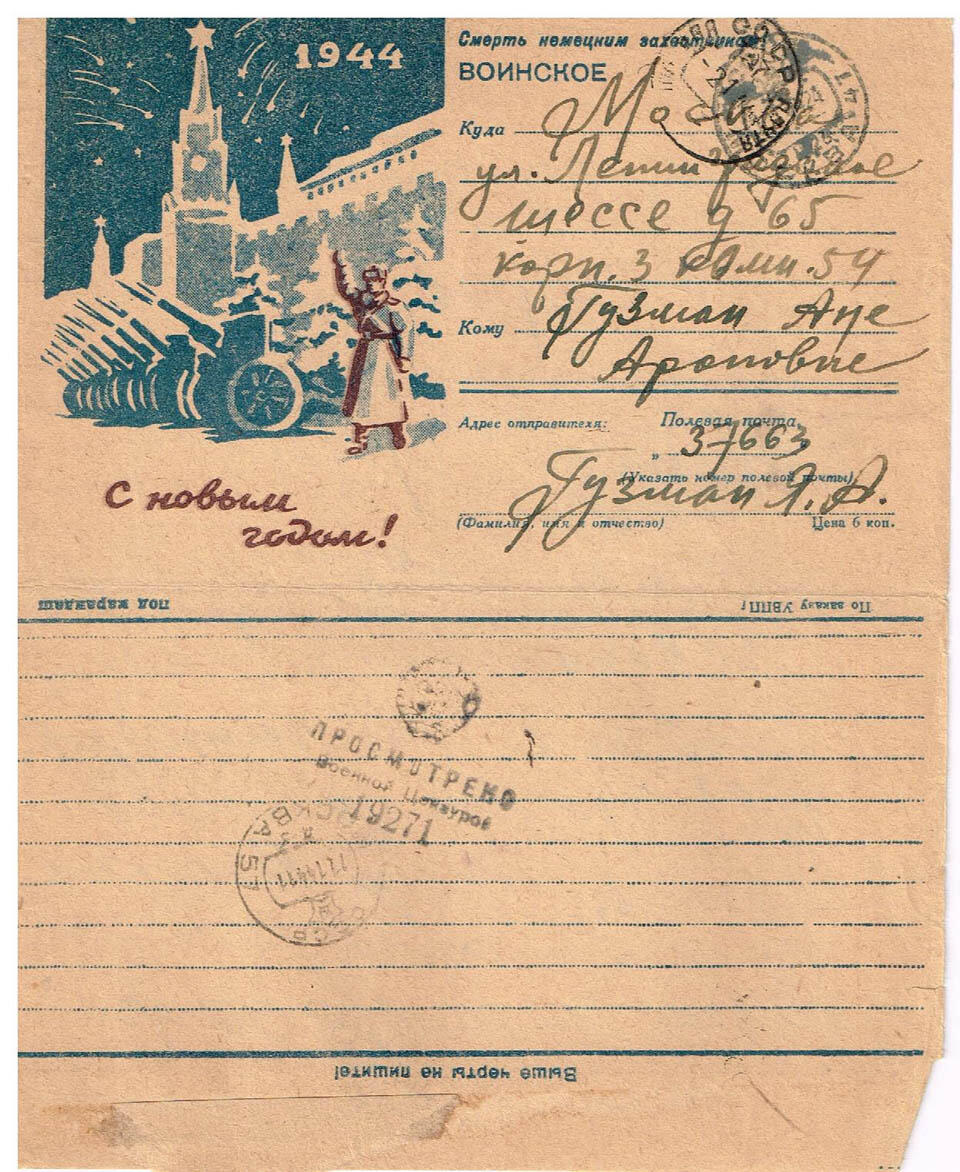 1944
Смерть немецким захватчикам!
ВОИНСКОЕ
Куда Москва
ул. Ленинградское
шоссе д 65
корп. 3 комн. 54
Кому Гузман Ане
Ароновне
Адрес отправителя: Полевая почта
" 37663
(Указать номер полевой почты)
Гузман Я. А.
(Фамилия, имя и отчество) Цена 6 коп.
С новым
годом!
По заказу УВПП
ПРОСМОТРЕНО
Военной Цензурой
19271
МОСКВА 57
Выше черты не пишите!